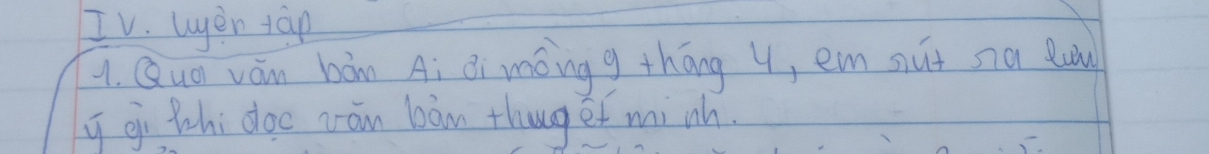 IV. luyện tập
1. Qua văn bản Ai ơi mồng 9 tháng 4, em rút ra lưu
ý gì khi đọc văn bản thuyết minh.